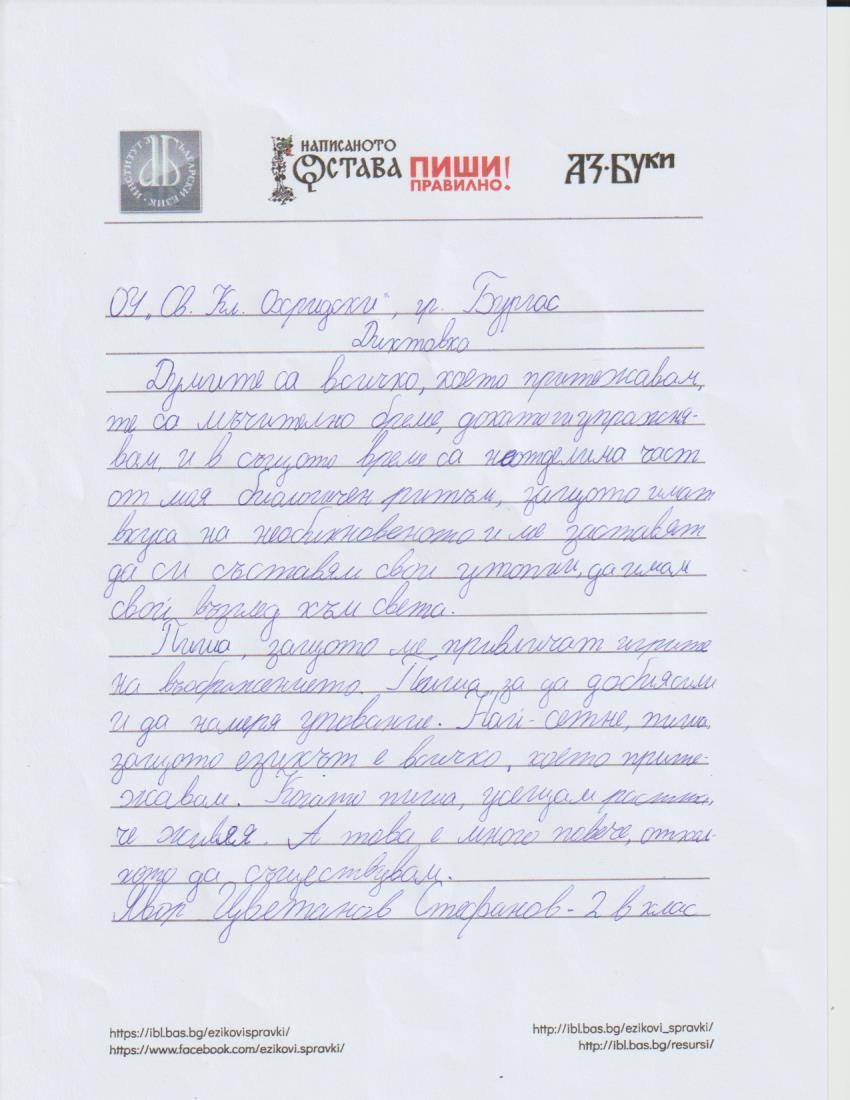 ИНСТИТУТ ЗА БЪЛГАРСКИ ЕЗИК
НАПИСАНОТО
ОСТАВА ПИШИ
ПРАВИЛНО!
АЗ·БУКИ
ОУ „Св. Кл. Охридски“, гр. Бургас
Диктовка
Думите са всичко, което притежавам,
те са мъчително бреме, докато ги упражня-
вам, и в същото време са неотделима част
от моя биологичен ритъм, защото имат
вкуса на необикновеното и ме заставят
да си съставям свои утопии, да имам
свой възглед към света.
Пиша, защото ме привличат игрите
на въображението. Пиша, за да добия сили
и да намеря упование. Най-сетне, пиша,
защото езикът е всичко, което прите-
жавам. Когато пиша, усещам
че живея. А това е много повече, откол-
кото да съществувам.
Явор Цветанов Стефанов - 2 в клас
https://ibl.bas.bg/ezikovispravki/
https://www.facebook.com/ezikovi.spravki/
http://ibl.bas.bg/ezikovi_spravki/
http://ibl.bas.bg/resursi/